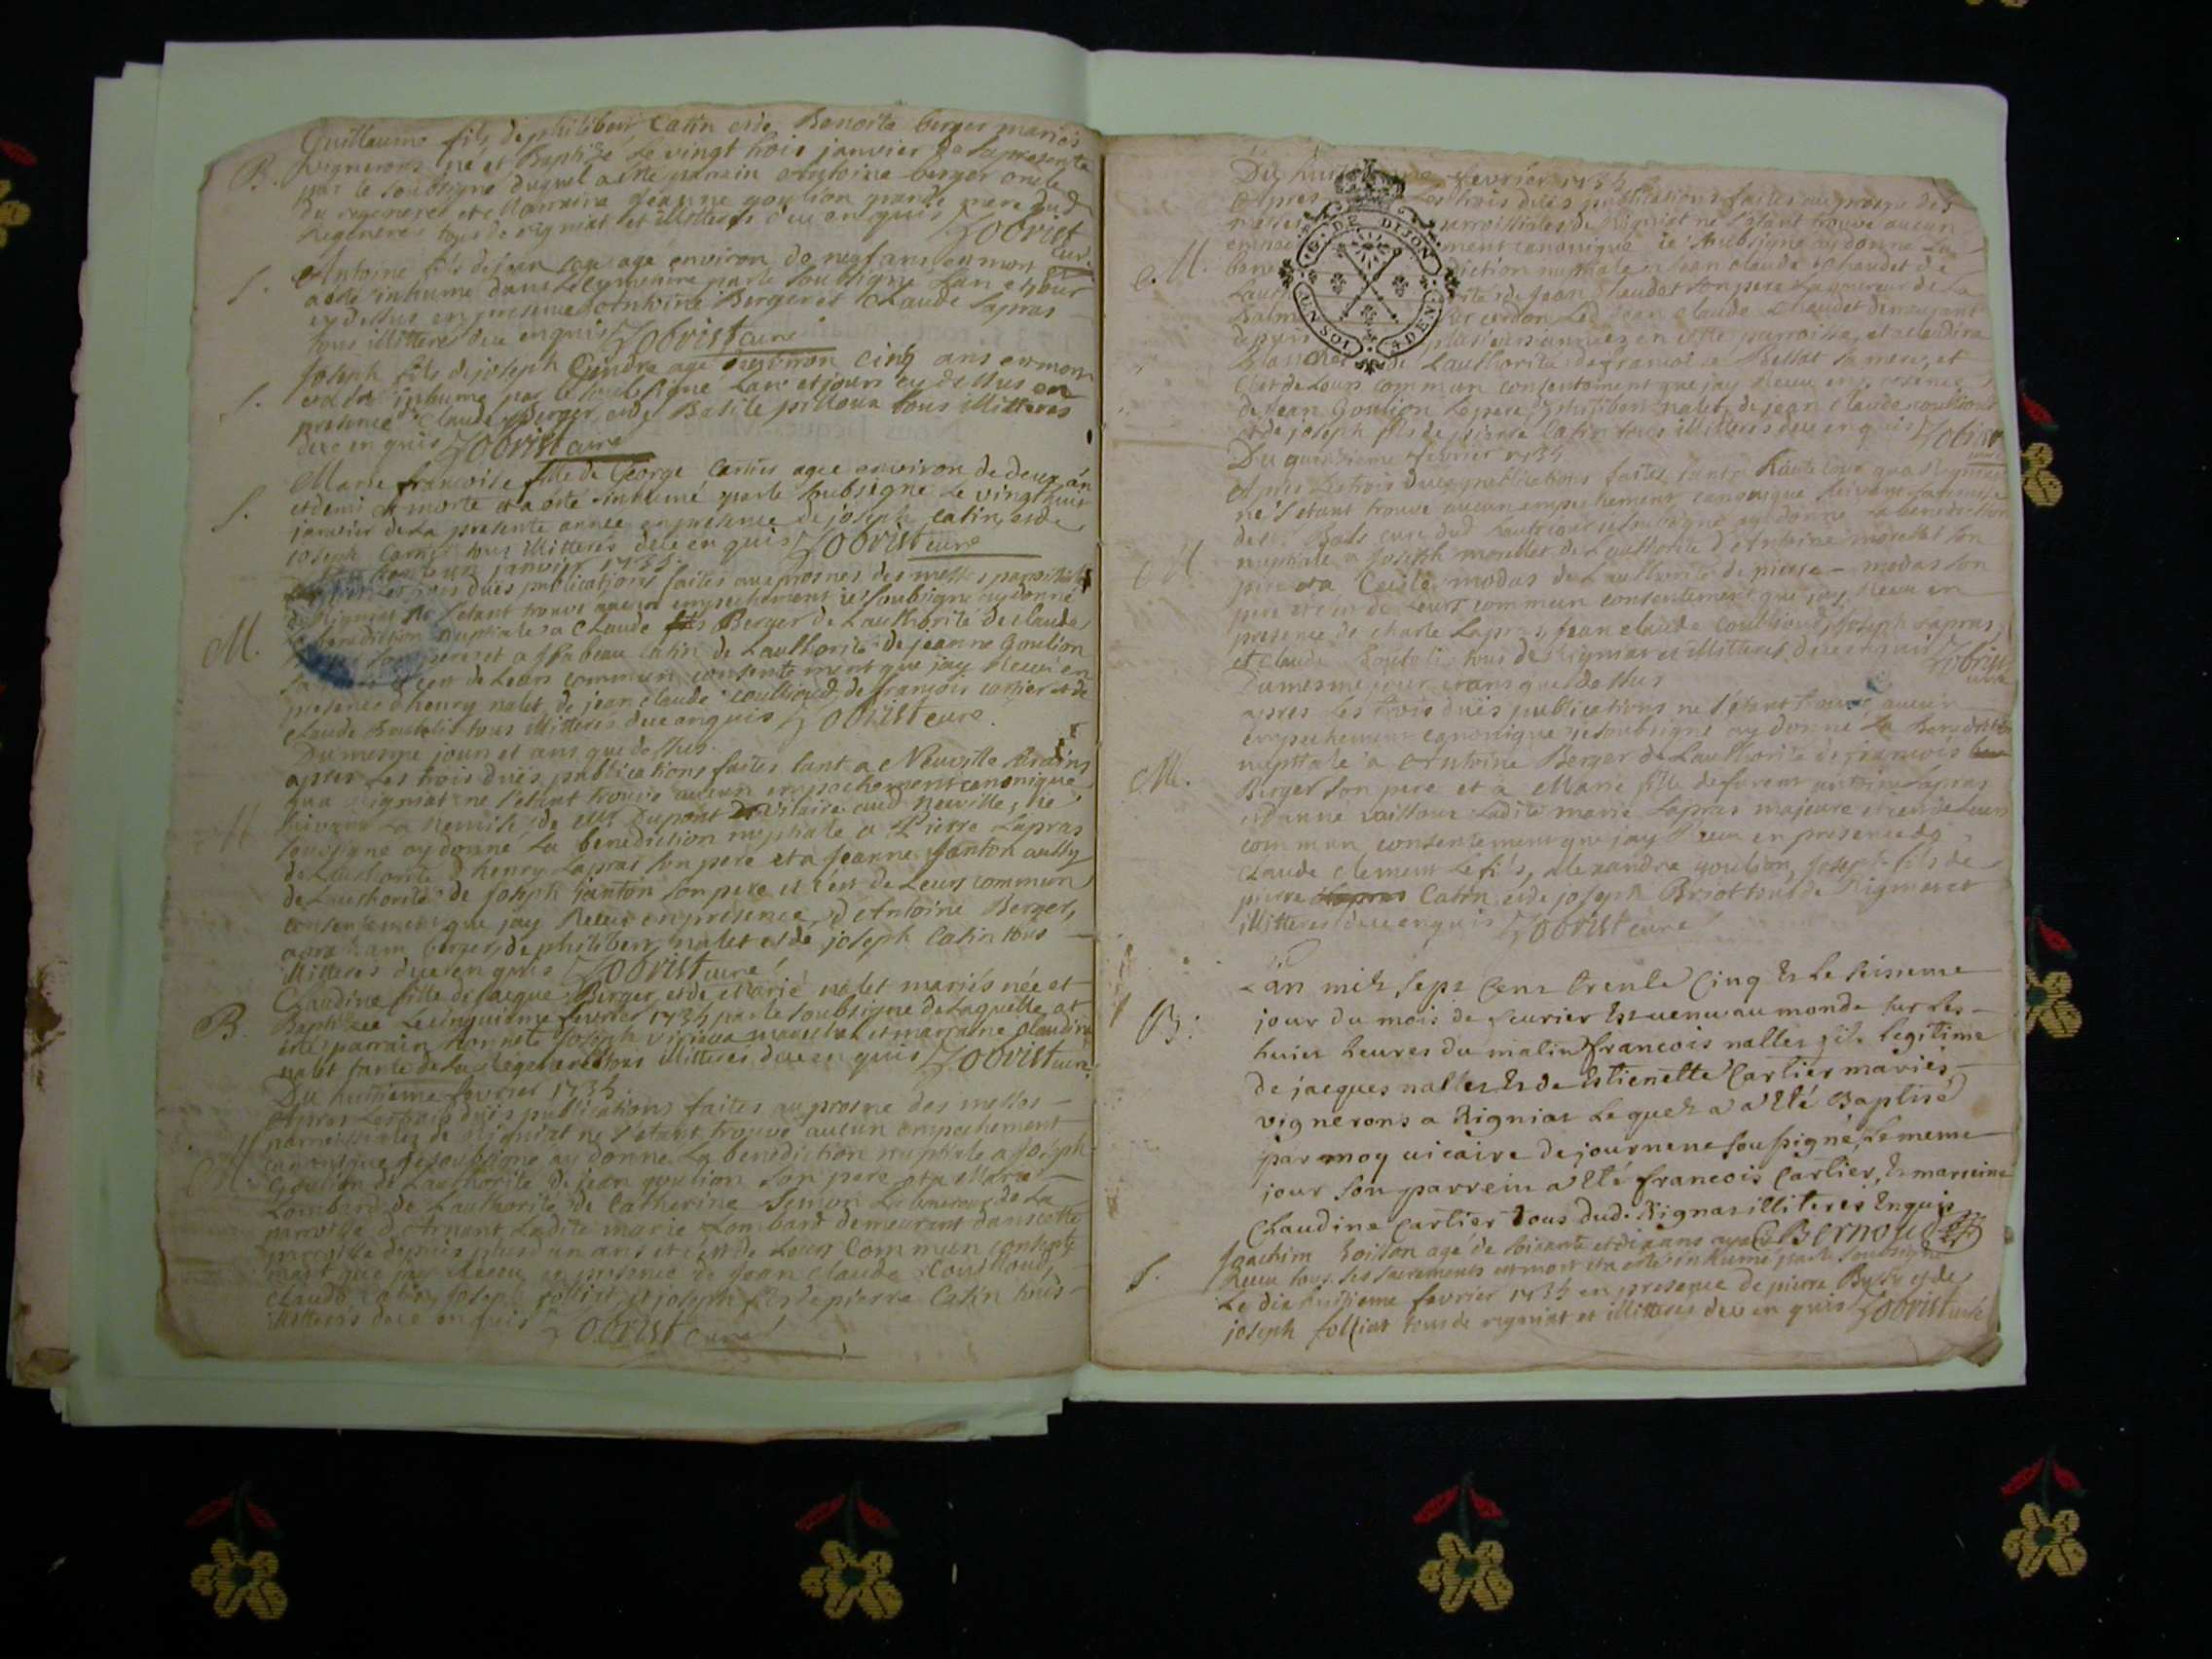 Guillaume fils de philibert Catin et de Benoite berger mariés
B. vignerons né et Baptizé le vingt trois janvier de la presente
par le soubsigné duquel a esté parrain Antoine berger oncle
du regeneré et Marraine jeanne goulion grande mere dud
regeneré tous de rigniat et illitterés deue enquis Jobrist
curé
S. Antoine fils de jean age environ de neuf ans est mort
a esté inhumé dans le cymetiere par le soubsigné l'an et jour
cy dessus en presence d'Antoine Berger et Claude Lapras
tous illitterés deue enquis Jobrist curé
joseph fils de joseph Gindre agé environ cinq ans est mort
S. et a esté inhumé par le soubsigné l'an et jours cy dessus en
presence de Claude Berger et de Basile pilloux tous illitterés
deue enquis Jobrist curé
Marie francoise fille de George Cartier agée environ de deux an
S. et demi est morte et a esté inhumé par le soubsigné le vingt huit
janvier de la presente année en presence de joseph Catin et de
joseph tous illitterés deue enquis Jobrist curé
janvier 1735
trois duës publications faites aux prosnes des messes paroissiales
de Rigniat ne s'etant trouvé aucun empechement je soubsigné ay donné
M. la benediction nuptiale a Claude Berger de l'authorité de claude
son pere et a Isabeau Catin de l'authorité de jeanne Goulion
sa mere et c'est de leurs commun consentement que jay Receu en
presence d'henry nalet, de jean claude coullioud, de francois cartier et de
claude tous illitterés deue enquis Jobrist curé.
Du mesme jour et ans que dessus.
apres les trois duës publications faites tant a Neuville
qua Rigniat ne s'etant trouvé aucun empechement canonique
M suivant la Remise de Mr Dupont Vicaire aud Neuville, je
soussigné ay donné la benediction nuptiale a Pierre Lapras
de l'authorité d'henry Lapras son pere et a jeanne Janton aussy
de l'authorité de joseph Janton son pere et c'est de leurs commun
consentement que jay Receu en presence d'Antoine Berger,
abraham berger, de philibert nalet et de joseph Catin tous
illitterés deue enquis Jobrist curé
Claudine fille de jacque Berger et de Marie nalet mariés née et
B. Baptizée le cinquieme fevrier 1735 par le soubsigné de laquelle at
esté parrain honneste joseph et marraine claudine
nalet tante de la Regenerée tous illitterés deue enquis Jobrist curé
Du huitieme fevrier 1735
Apres les trois duës publications faites au prosne des messes
parroissiales de Rigniat ne s'etant trouvé aucun empechement
canonique je soubsigné ay donné la benediction nuptiale a joseph
M. Goulion de l'authorité de jean goulion son pere et a Marie
Lombard de l'authorité de Catherine de la
parroisse d'Arnant ladite marie Lombard demeurant dans cette
parroisse depuis plus d'un ans et c'est de leurs commun consente
ment que jay Receu en presence de jean claude Coullioud,
claude joseph folliat, et joseph fils de pierre Catin tous
illitterés deue enquis Jobrist curé
Du huitieme fevrier 1735
Apres les trois duës publications faites au prosne des
messes parroissiales de Rigniat ne s'estant trouvé aucun
empechement canonique je soubsigné ay donné la
M. benediction nuptiale a jean claude Chaudet de
l'authorité de jean Chaudet son pere Laboureur de la
Balme led jean claude Chaudet demeurant
depuis plusieurs années en cette parroisse, et a claudine
de l'authorité de francoise sa mere, et
c'est de leurs commun consentement que jay Receu en presence
de jean Goulion le pere, philibert nalet, de jean claude coullioud
et de joseph fils de pierre Catin tous illitterés deue enquis Jobrist
curé
Du quinzieme fevrier 1735
Apres les trois duës publications faites tant a hautecour qua Rigniat
ne s'etant trouvé aucun empechement canonique suivant la remise
de Mr curé dud hautecour je soubsigné ay donné la benediction
M. nuptiale a joseph morellet de l'authorité d'Antoine morellet son
pere et a modas de l'authorité de pierre modas son
pere et c'est de leurs commun consentement que jay Receu en
presence de charle Lapras, jean claude coullioud, joseph Lapras,
et claude tous de Rigniat et illitterés deue enquis Jobrist
curé
Du mesme jour et ans que dessus
apres les trois duës publications ne s'etant trouvé aucun
empechement canonique je soubsigné ay donné la Benediction
M. nuptiale a Antoine Berger de l'authorité de francois
Berger son pere et a Marie fille de furent antoine Lapras
et d'anne vailloux ladite marie Lapras majeure et c'est de leurs
commun consentement que jay Receu en presence de
claude clement le fils, alexandre goulion, joseph fils de
pierre Catin et de joseph Briot tous de Rigniat et
illitterés deue enquis Jobrist curé
L'an mil sept cent trente cinq et le seisieme
B: jour du mois de feurier est uenu au monde sur les
huict heures du matin francois nallet fils legitime
de jacques nallet et de Estienette Cartier mariés
vignerons a Rigniat lequel a esté Baptisé
par moy uicaire de journene soussigné, le meme
jour son parrein a esté francois Cartier, et marreine
Claudine Cartier tous dud. Rigniat illiterés Enquis
Bernoud
joachim agé de soixante et dix ans ayant
S. Receu tous les sacrements est mort et a esté inhumé par le soubsigné
le dix huitieme fevrier 1735 en presence de pierre et de
joseph folliat tous de rigniat et illitterés deue enquis Jobrist curé
G. DE DIJON
UN SOL
4 DEN.